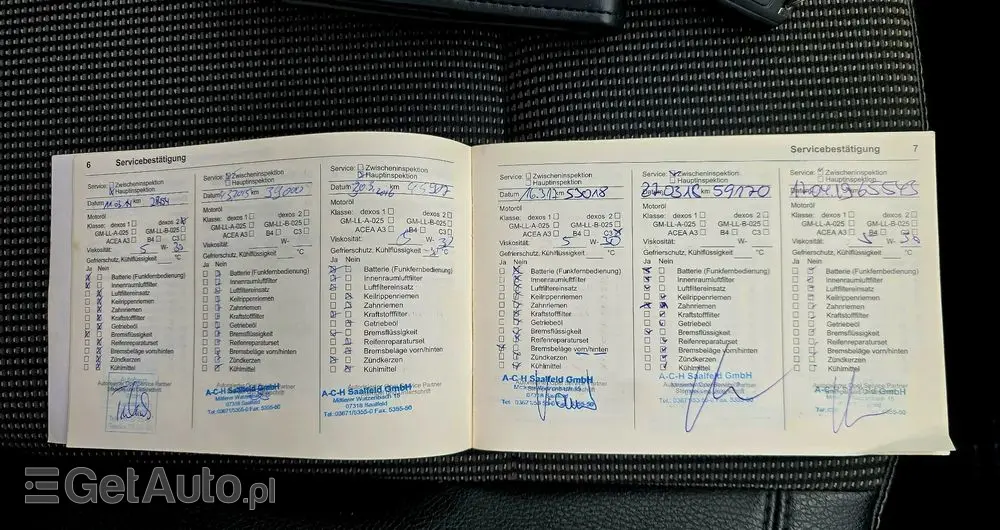 6 Servicebestätigung
Service: Zwischeninspektion
Hauptinspektion
Datum km
Motoröl
Klasse: dexos 1 dexos 2
GM-LL-A-025 GM-LL-B-025
ACEA A3 B4 C3
Viskosität: 5 W- 30
Gefrierschutz, Kühlflüssigkeit °C
Ja Nein
Batterie (Funkfernbedienung)
Innenraumluftfilter
Luftfiltereinsatz
Keilrippenriemen
Zahnriemen
Kraftstofffilter
Getriebeöl
Bremsflüssigkeit
Reifenreparaturset
Bremsbeläge vorn/hinten
Zündkerzen
Kühlmittel
Service: Zwischeninspektion
Hauptinspektion
Datum km 39000
Motoröl
Klasse: dexos 1 dexos 2
GM-LL-A-025 GM-LL-B-025
ACEA A3 B4 C3
Viskosität: W-
Gefrierschutz, Kühlflüssigkeit °C
Ja Nein
Batterie (Funkfernbedienung)
Innenraumluftfilter
Luftfiltereinsatz
Keilrippenriemen
Zahnriemen
Kraftstofffilter
Getriebeöl
Bremsflüssigkeit
Reifenreparaturset
Bremsbeläge vorn/hinten
Zündkerzen
Kühlmittel
A-C-H Saalfeld GmbH
07318 Saalfeld
Tel.: 03671/5355-0 Fax. 5355-50
Service: Zwischeninspektion
Hauptinspektion
Datum km
Motoröl
Klasse: dexos 1 dexos 2
GM-LL-A-025 GM-LL-B-025
ACEA A3 B4 C3
Viskosität: 5 W- 30
Gefrierschutz, Kühlflüssigkeit °C
Ja Nein
Batterie (Funkfernbedienung)
Innenraumluftfilter
Luftfiltereinsatz
Keilrippenriemen
Zahnriemen
Kraftstofffilter
Getriebeöl
Bremsflüssigkeit
Reifenreparaturset
Bremsbeläge vorn/hinten
Zündkerzen
Kühlmittel
A-C-H Saalfeld GmbH
07318 Saalfeld
Tel.: 03671/5355-0 Fax. 5355-50
Servicebestätigung 7
Service: Zwischeninspektion
Hauptinspektion
Datum km 53018
Motoröl
Klasse: dexos 1 dexos 2
GM-LL-A-025 GM-LL-B-025
ACEA A3 B4 C3
Viskosität: 5 W- 30
Gefrierschutz, Kühlflüssigkeit °C
Ja Nein
Batterie (Funkfernbedienung)
Innenraumluftfilter
Luftfiltereinsatz
Keilrippenriemen
Zahnriemen
Kraftstofffilter
Getriebeöl
Bremsflüssigkeit
Reifenreparaturset
Bremsbeläge vorn/hinten
Zündkerzen
Kühlmittel
A-C-H Saalfeld GmbH
07318 Saalfeld
Tel.: 03671/5355-0 Fax. 5355-50
Service: Zwischeninspektion
Hauptinspektion
Datum 22.03.18 km 59170
Motoröl
Klasse: dexos 1 dexos 2
GM-LL-A-025 GM-LL-B-025
ACEA A3 B4 C3
Viskosität: W-
Gefrierschutz, Kühlflüssigkeit °C
Ja Nein
Batterie (Funkfernbedienung)
Innenraumluftfilter
Luftfiltereinsatz
Keilrippenriemen
Zahnriemen
Kraftstofffilter
Getriebeöl
Bremsflüssigkeit
Reifenreparaturset
Bremsbeläge vorn/hinten
Zündkerzen
Kühlmittel
A-C-H Saalfeld GmbH
Service: Zwischeninspektion
Hauptinspektion
Motoröl
Klasse: dexos 1 dexos 2
GM-LL-A-025 GM-LL-B-025
ACEA A3 B4 C3
Viskosität: 5 W- 30
Gefrierschutz, Kühlflüssigkeit °C
Ja Nein
Batterie (Funkfernbedienung)
Innenraumluftfilter
Luftfiltereinsatz
Keilrippenriemen
Zahnriemen
Kraftstofffilter
Getriebeöl
Bremsflüssigkeit
Reifenreparaturset
Bremsbeläge vorn/hinten
Zündkerzen
Kühlmittel
A-C-H Saalfeld GmbH
GetAuto.pl